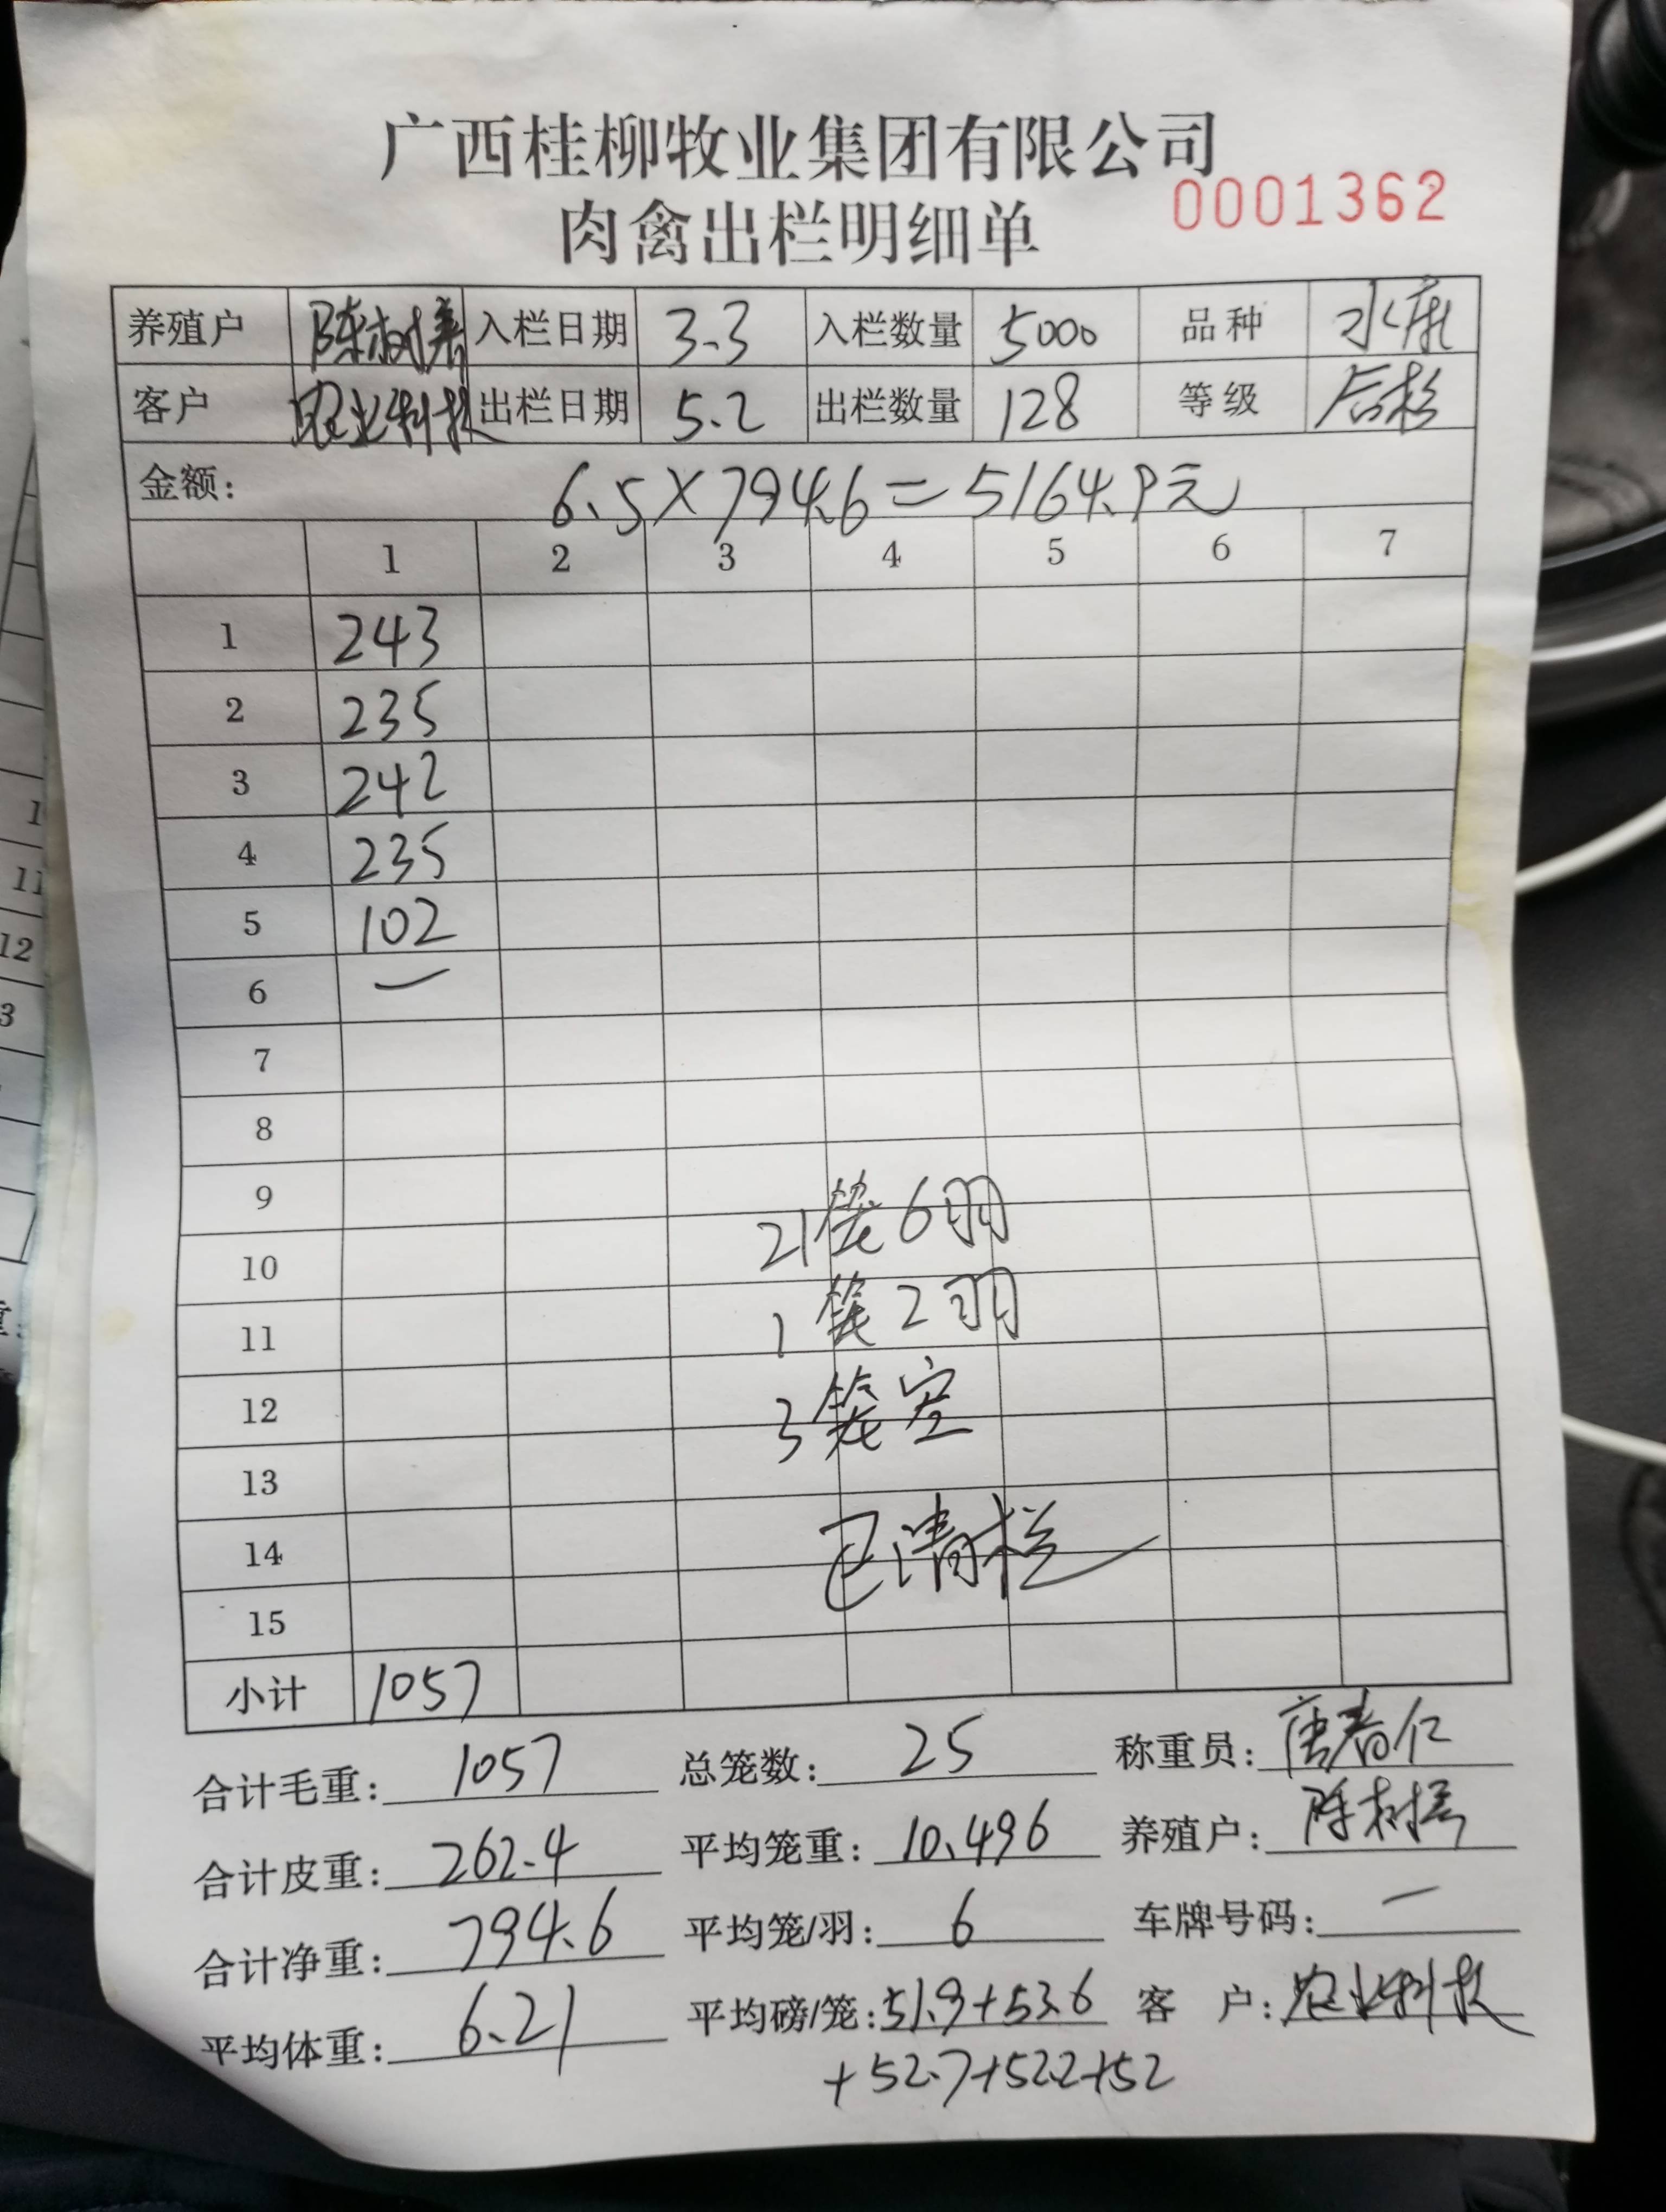 广西桂柳牧业集团有限公司
肉禽出栏明细单 0001362
养殖户 陈树 入栏日期 3.3 入栏数量 5000 品种 水
客户 农业科技 出栏日期 5.2 出栏数量 128 等级
金额: 6.5×794.6=5164.9元
1 2 3 4 5 6 7
1 243
2 235
3 242
4 235
5 102
6 一
7
8
9
21笼6羽
10
11
1笼2羽
12
3笼空
13
14
已清栏
15
小计 1057
合计毛重: 1057 总笼数: 25 称重员: 唐春仁
合计皮重: 262.4 平均笼重: 10.496 养殖户: 陈树
合计净重: 794.6 平均笼/羽: 6 车牌号码: 一
平均体重: 6.21 平均磅/笼: 51.9+53.6 客 户: 农业科技
+52.7+52.2+52
10
11
12
3